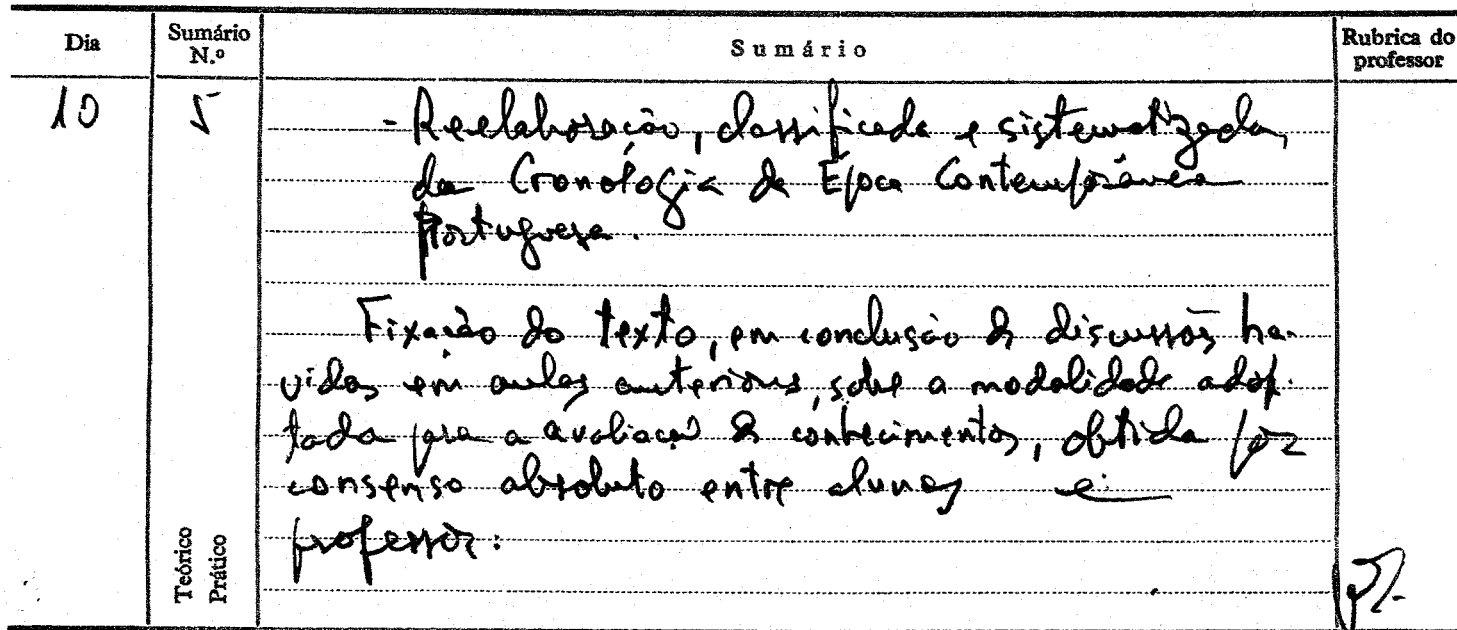 Dia
Sumário
N.º
Sumário
Rubrica do
professor
10
5
- Reelaboração, classificada e sistematizada,
da Cronologia da Época Contemporânea
Portuguesa.
Fixação do texto, em conclusão de discussões ha-
vidas em aulas anteriores, sobre a modalidade adop-
tada para a avaliação de conhecimentos, obtida por
consenso absoluto entre alunos e
professor.
Teórico
Prático